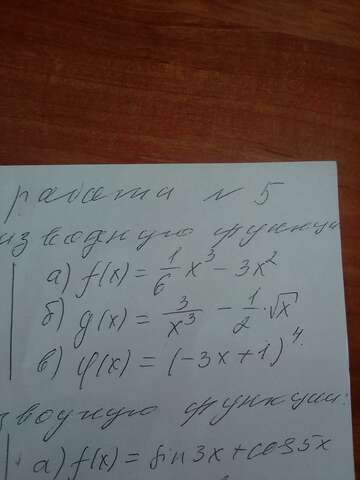 работа № 5
изводную функции
а) f(x) = 1/6 x³ - 3x²
б) g(x) = 3/x³ - 1/2 · √x
в) φ(x) = (-3x + 1)⁴.
зводную функции:
а) f(x) = sin 3x + cos 5x